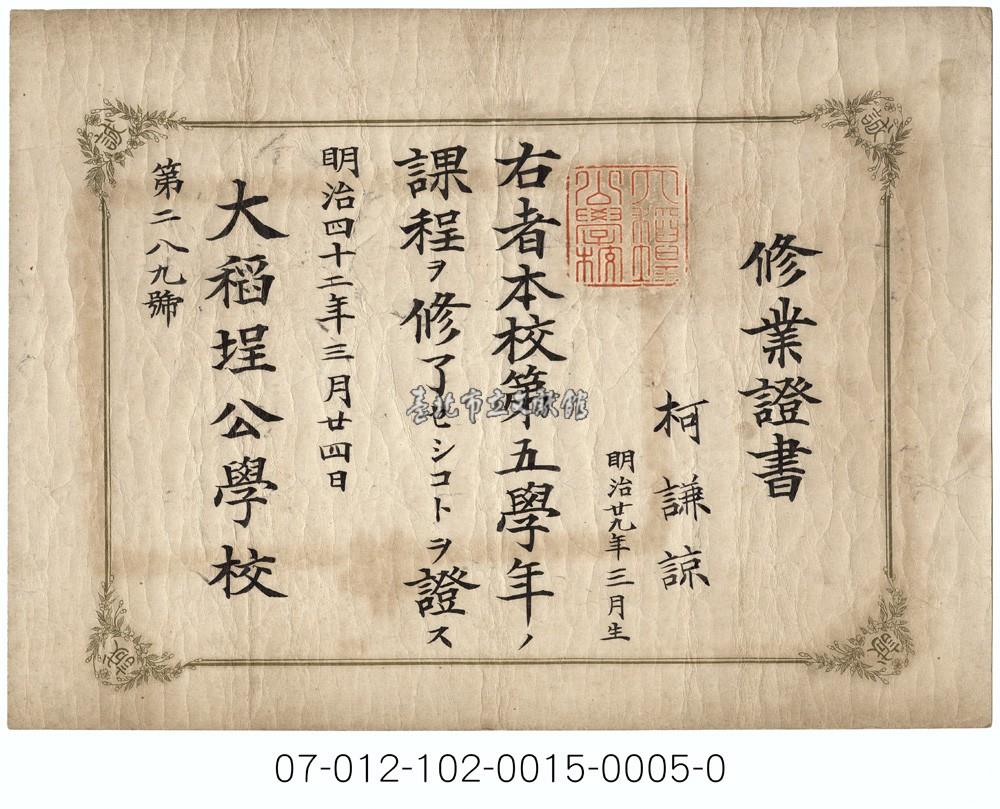 修業證書
柯謙諒
明治廿九年三月生
大稻埕
公學校
右者本校第五學年ノ
課程ヲ修了セシコトヲ證ス
明治四十二年三月廿四日
大稻埕公學校
第二八九號
臺北市立文獻館
07-012-102-0015-0005-0